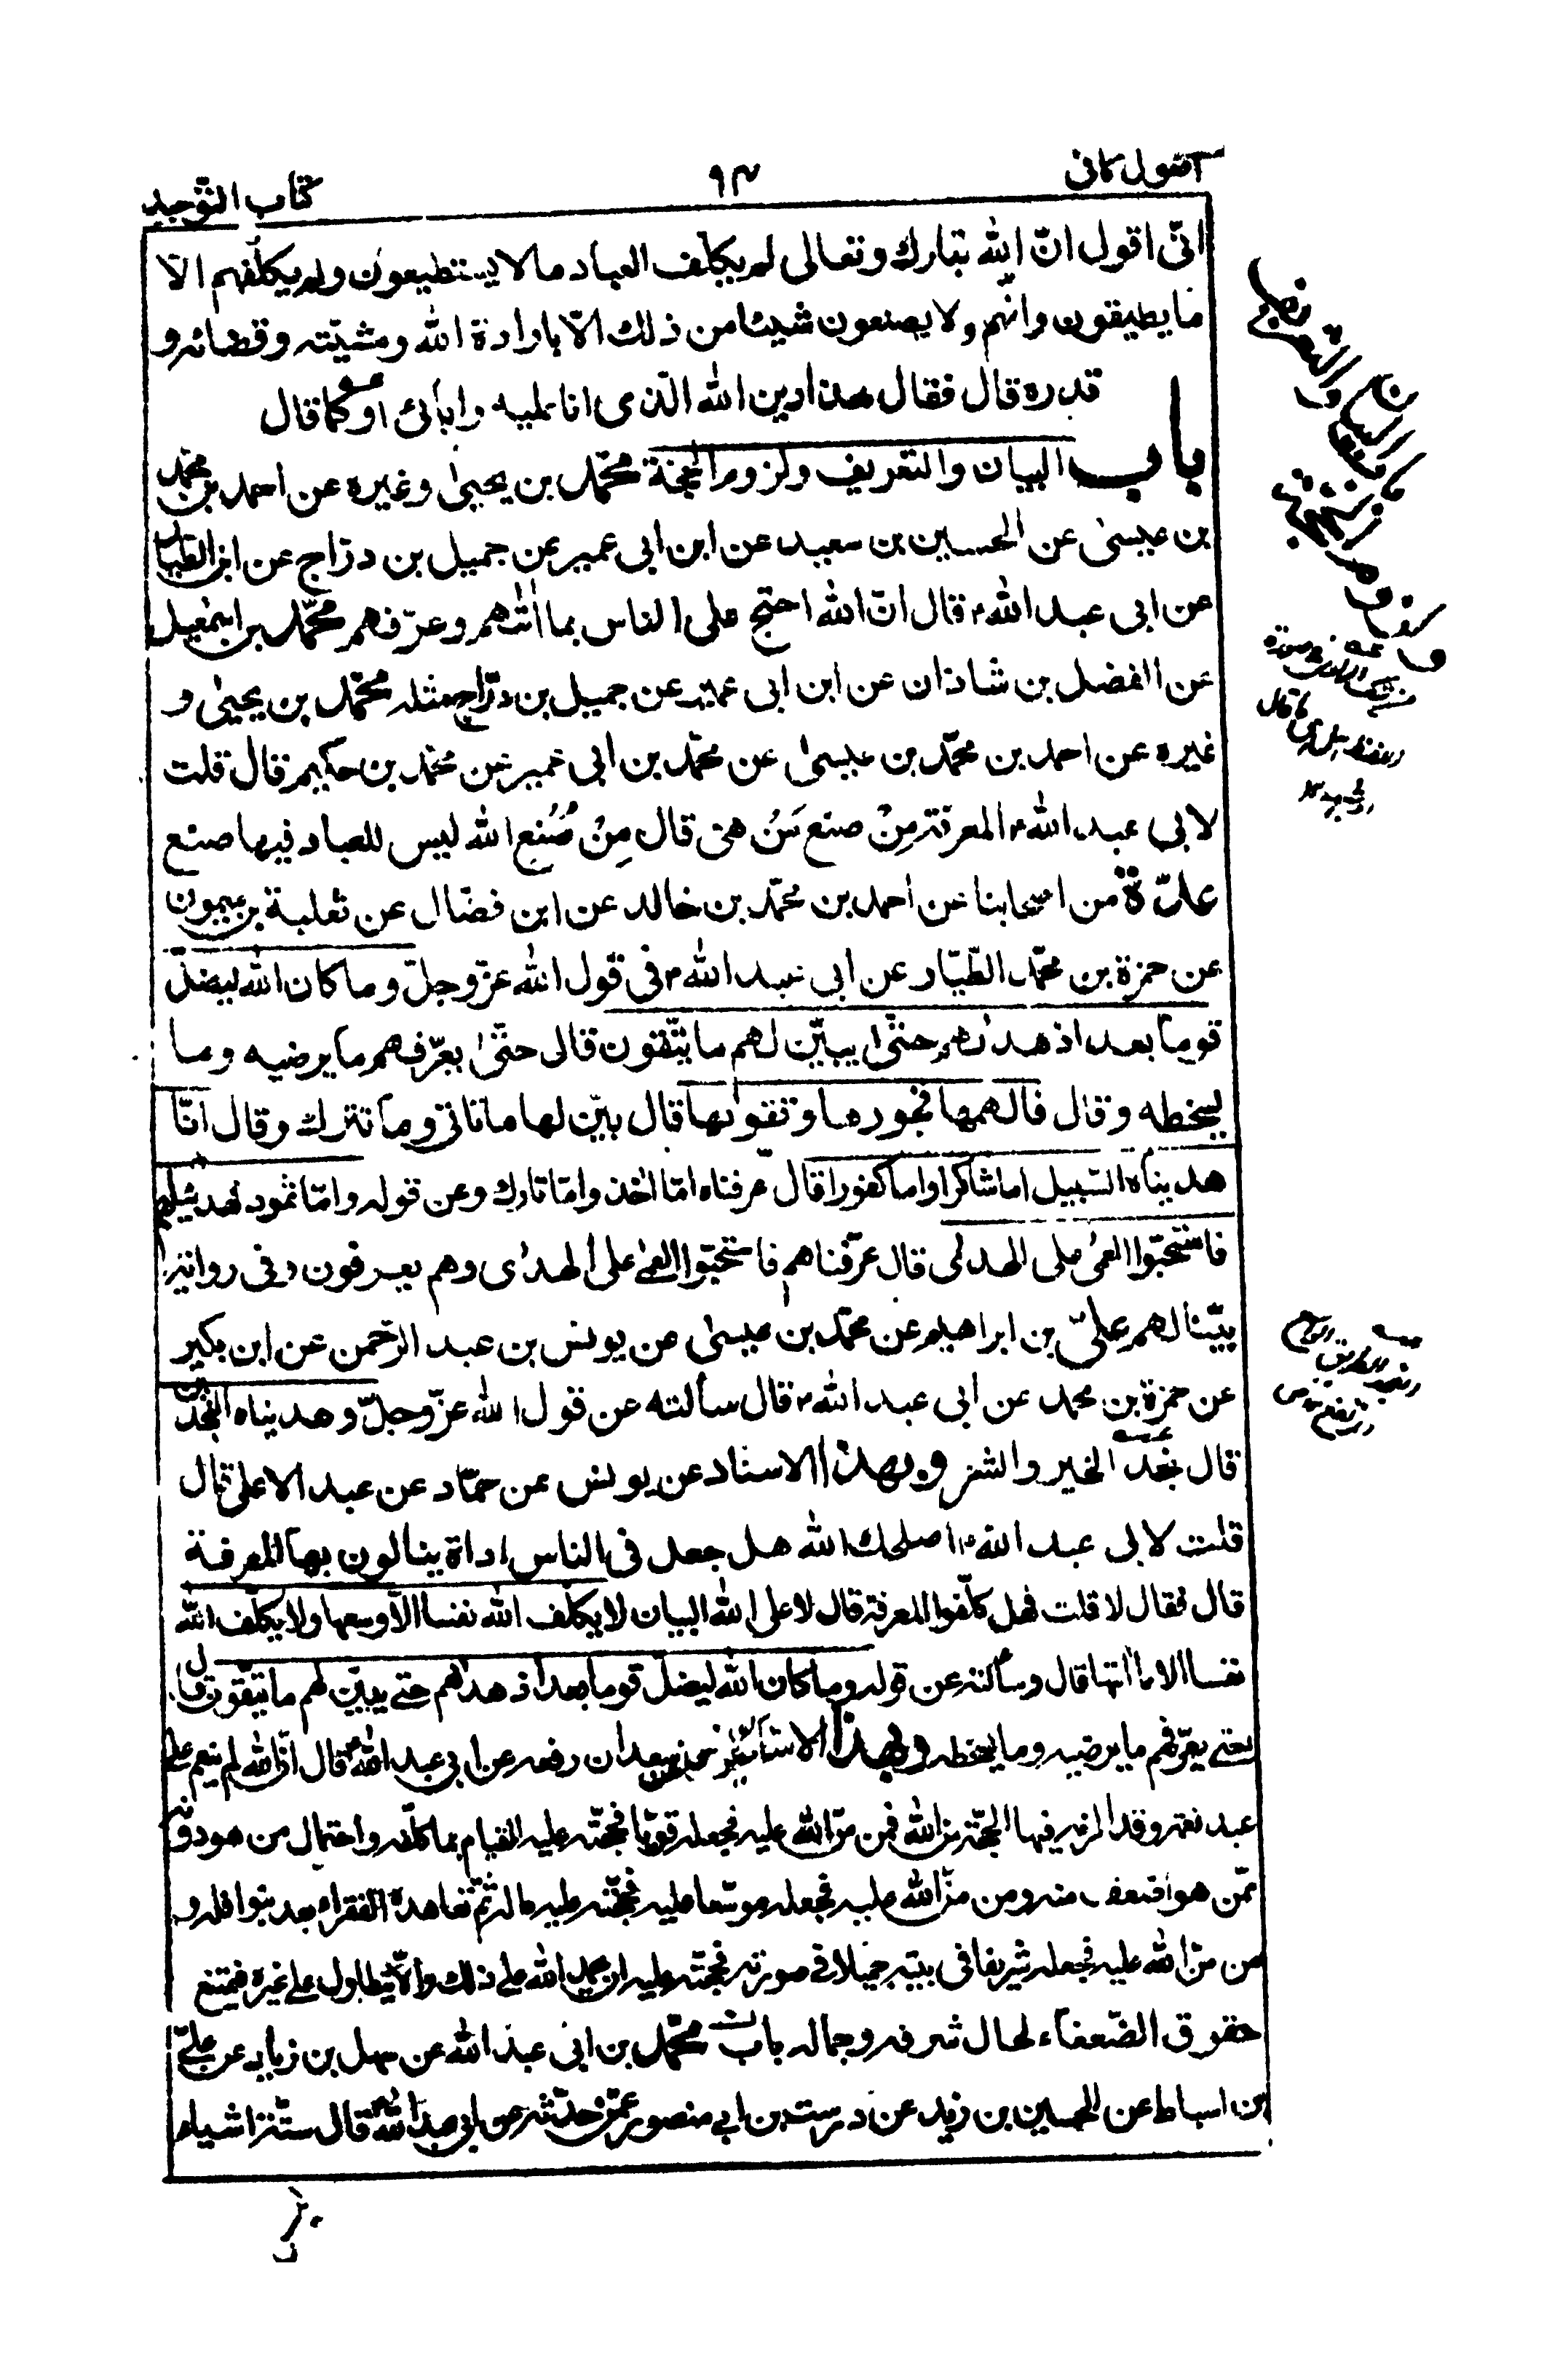 اصول كافى
٩٤
كتاب التّوحيد
انّى اقول انّ الله تبارك وتعالى لم يكلّف العباد ما لا يستطيعون ولم يكلّفهم الّا
ما يطيقون وانّهم ولا يصنعون شيئا من ذلك الّا بارادة الله ومشيّته وقضائه و
قدره قال فقال هذا دين الله الّذى انا عليه وابائى او كما قال
باب البيان والتعريف ولزوم الحجّة محمّد بن يحيىٰ وغيره عن احمد بن محمّد
بن عيسىٰ عن الحسين بن سعيد عن ابن ابى عمير عن جميل بن درّاج عن ابن الطيّار
عن ابى عبد الله ٴ قال انّ الله احتجّ على الناس بما اٰتاهم وعرّفهم محمّد بن اسمٰعيل
عن الفضل بن شاذان عن ابن ابى عمير عن جميل بن درّاج مثله محمّد بن يحيىٰ و
غيره عن احمد بن محمّد بن عيسىٰ عن محمّد بن ابى عمير عن محمّد بن حكيم قال قلت
لابى عبد الله ٴ المعرفة مِنْ صنع مَنْ هى قال مِنْ صُنع الله ليس للعباد فيها صنع
عدّة من اصحابنا عن احمد بن محمّد بن خالد عن ابن فضّال عن ثعلبة بن ميمون
عن حمزة بن محمّد الطّيّار عن ابى عبد الله ٴ فى قول الله عزّ وجلّ وما كان الله ليضلّ
قوما بعد اذ هدٰىهم حتّىٰ يبيّن لهم ما يتّقون قال حتّىٰ يعرّفهم ما يرضيه وما
يسخطه وقال فالهمها فجورها وتقوٰىها قال بيّن لها ما تاتى وما تترك وقال انّا
هديناه السّبيل اما شاكرا واما كفورا قال عرفناه امّا اٰخذ وامّا تارك وعن قوله وامّا ثمود فهديناهم
فاستحبّوا العمىٰ على الهدىٰ قال عرّفناهم فاستحبّوا العمىٰ على الهدىٰ وهم يعرفون وفى رواية
بيّنا لهم علىّ بن ابراهيم عن محمّد بن عيسىٰ عن يونس بن عبد الرّحمن عن ابن بكير
عن حمزة بن محمد عن ابى عبد الله ٴ قال سألته عن قول الله عزّ وجلّ وهديناه النّجدين
قال نجد الخير والشر وبهذا الاسناد عن يونس عن حمّاد عن عبد الاعلى قال
قلت لابى عبد الله ٴ اصلحك الله هل جعل فى الناس اداة ينالون بها المعرفة
قال فقال لا قلت فهل كلّفوا المعرفة قال لا على الله البيان لا يكلّف الله نفسا الّا وسعها ولا يكلّف الله
نفسا الا ما اٰتٰها قال وسألته عن قوله وما كان الله ليضلّ قوما بعد اذ هداهم حتى يبيّن لهم ما يتّقون قال
حتى يعرّفهم ما يرضيه وما يسخطه وبهذا الاسناد عن يونس عن سعدان رفعه عن ابى عبد الله ٴ قال انّ الله لم ينعم على
عبد نعمة وقد الزمه فيها الحجّة من الله فمن منّ الله عليه فجعله قويّا فحجّته عليه القيام بما كلّفه واحتمال من هو دونه
ممّن هو اضعف منه ومن منّ الله عليه فجعله موسّعا عليه فحجّته عليه ماله ثمّ تعاهده الفقراء بعد بنوافله و
من منّ الله عليه فجعله شريفا فى بيته جميلا فى صورته فحجّته عليه ان يحمد الله على ذلك والّا يتطاول على غيره فيمنع
حقوق الضّعفاء لحال شرفه وجماله باب محمّد بن ابى عبد الله عن سهل بن زياد عن علىّ
بن اسباط عن الحسين بن زيد عن درست بن ابى منصور عمّن حدّثه عن ابى عبد الله ٴ قال ستّة اشياء